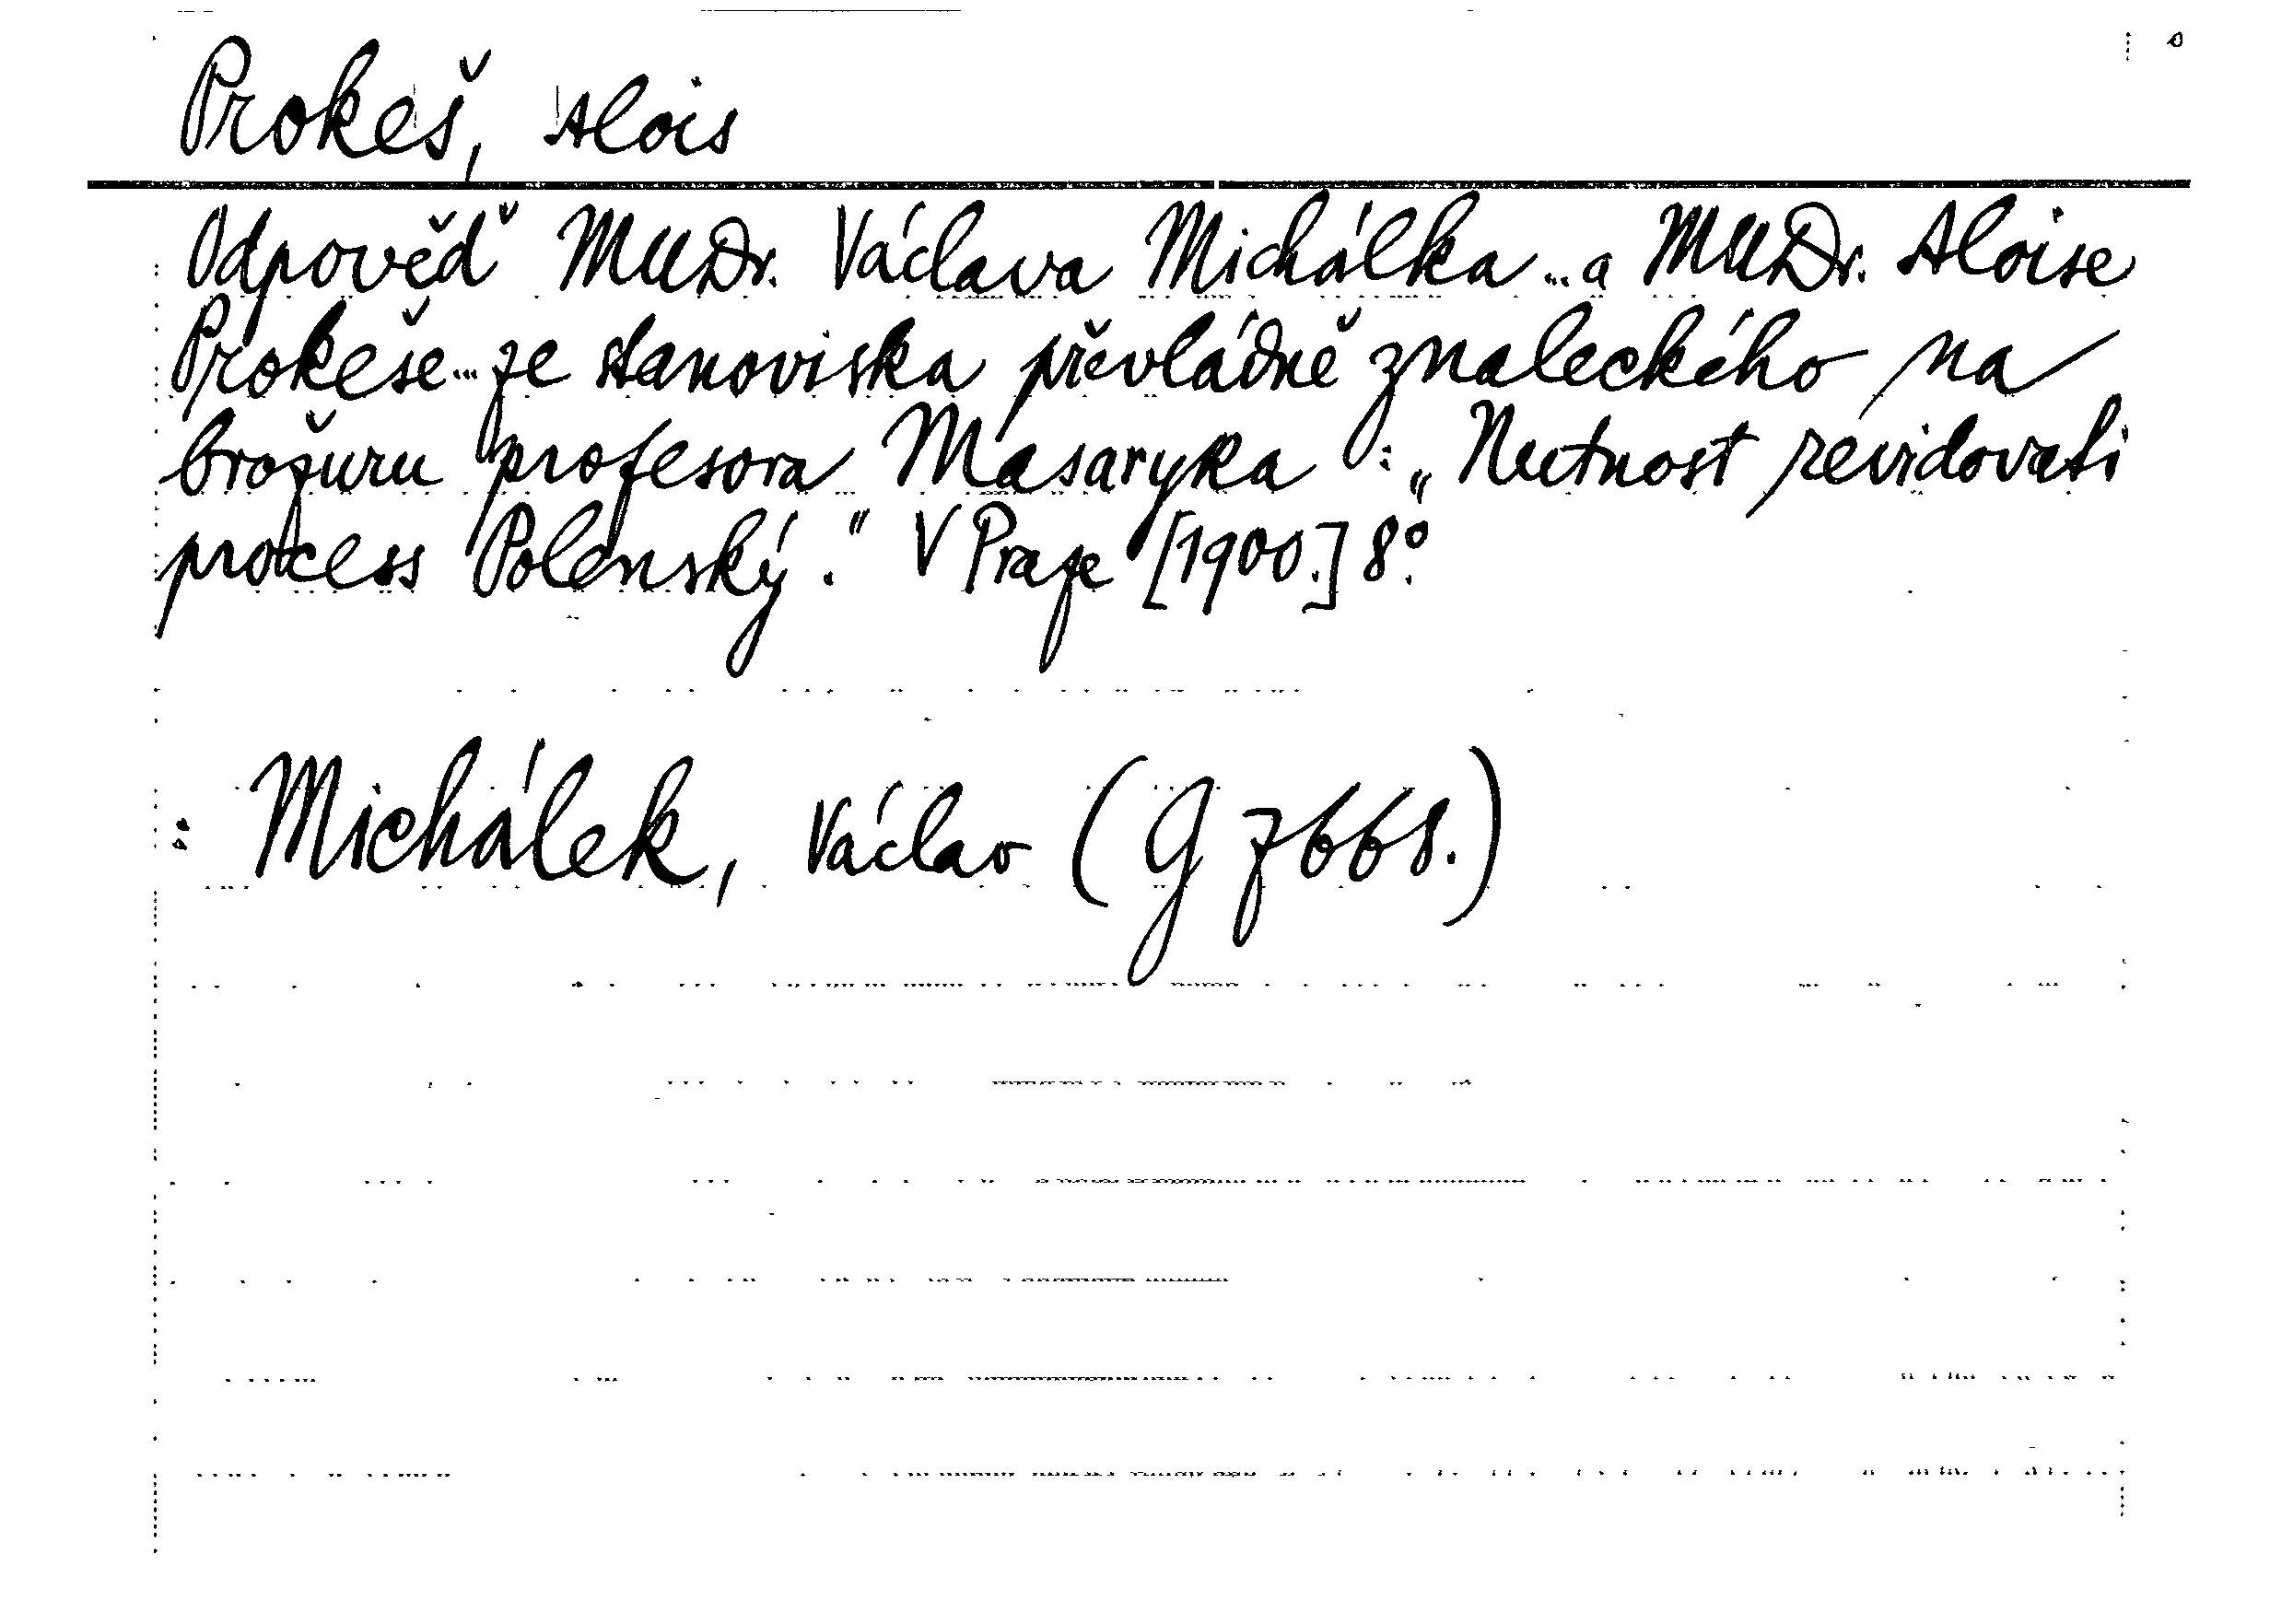 Prokeš, Alois
Odpověď MUDr. Václava Michálka ... a MUDr. Aloise
Prokeše ... ze stanoviska převládně znaleckého na
brožuru profesora Masaryka : „Nutnost revidovati
process Polenský." V Praze [1900.] 8°.
: Michálek, Václav (G 7668.)